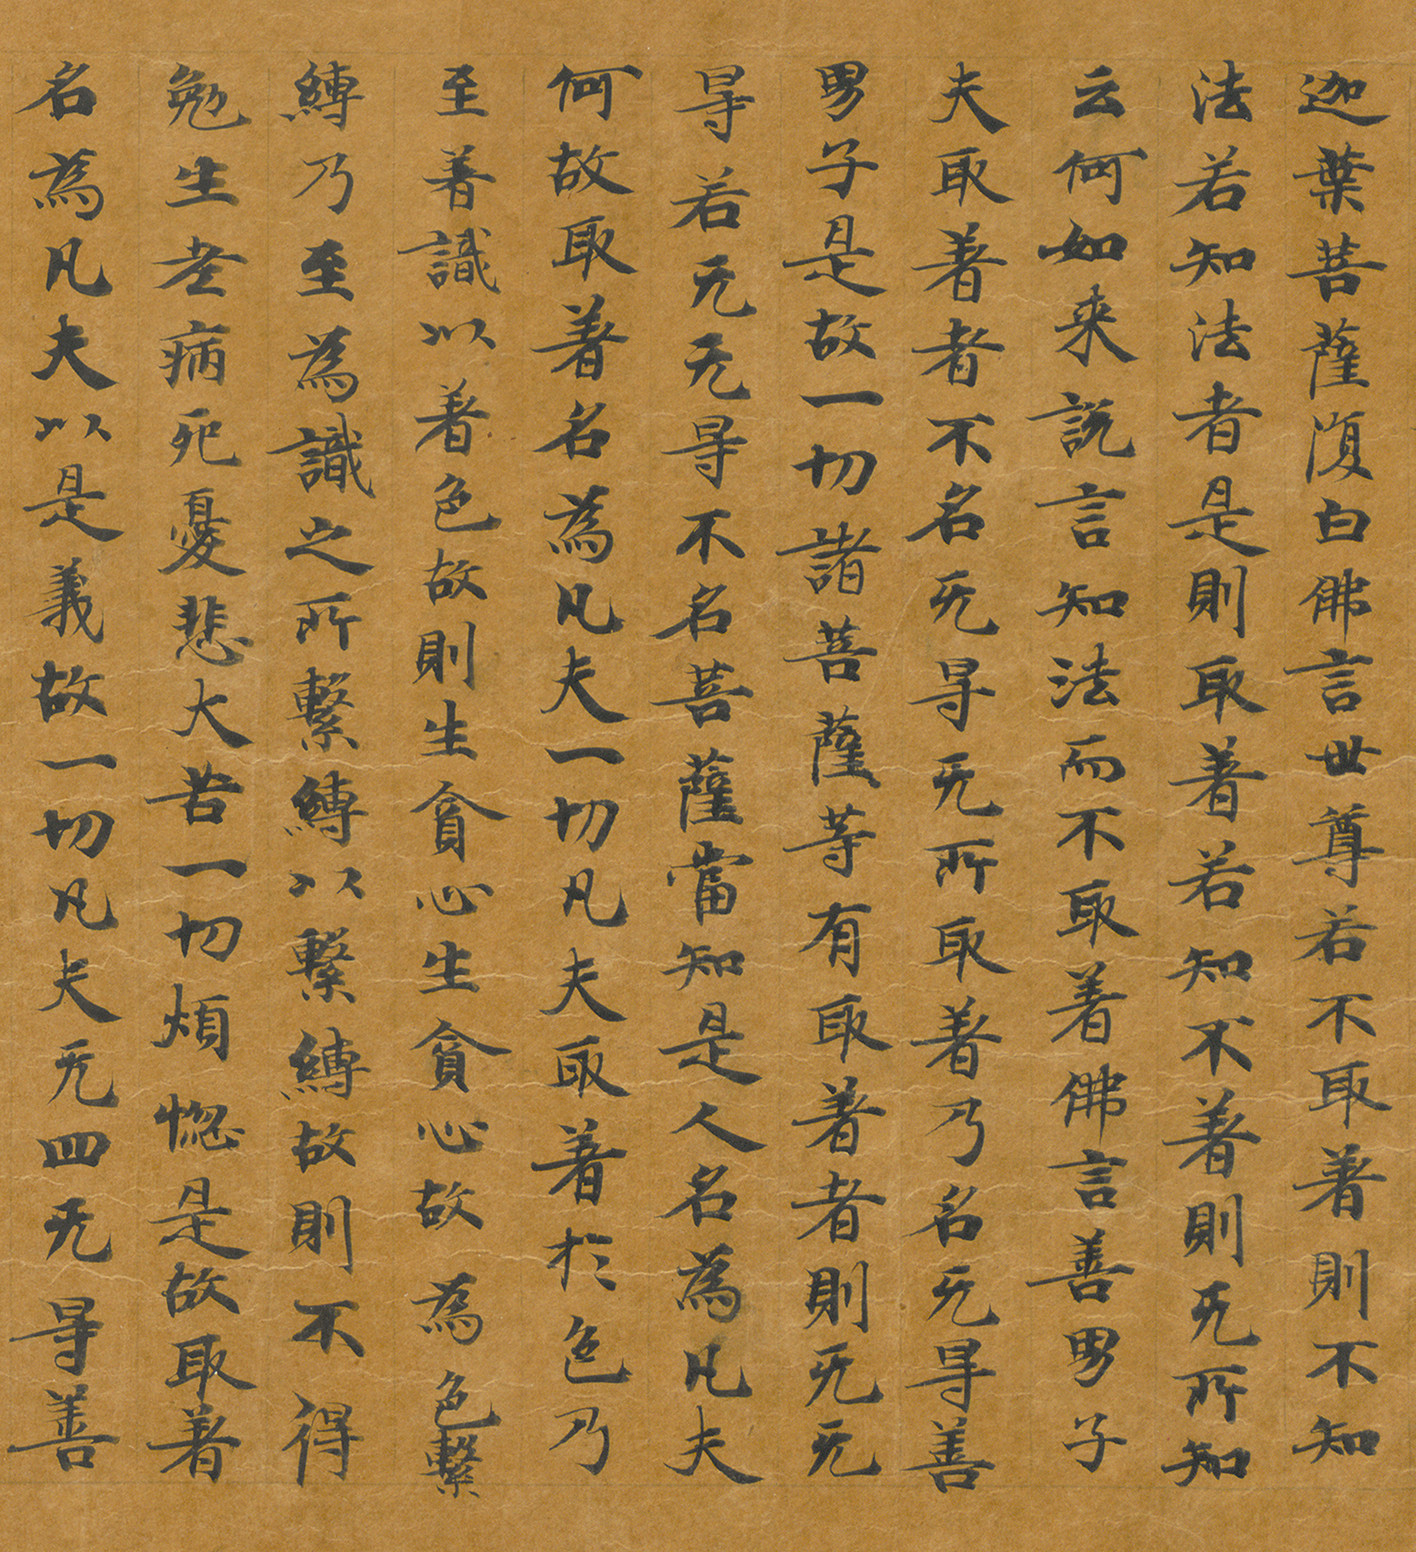 迦葉菩薩復白佛言世尊若不取著則不知
法若知法者是則取著若知不著則无所知
云何如来說言知法而不取著佛言善男子
夫取著者不名无㝵无所取著乃名无㝵善
男子是故一切諸菩薩等有取著者則无无
㝵若无无㝵不名菩薩當知是人名為凡夫
何故取著名為凡夫一切凡夫取著於色乃
至著識以著色故則生貪心生貪心故為色繫
縛乃至為識之所繫縛以繫縛故則不得
勉生老病死憂悲大苦一切煩惱是故取著
名為凡夫以是義故一切凡夫无四无㝵善